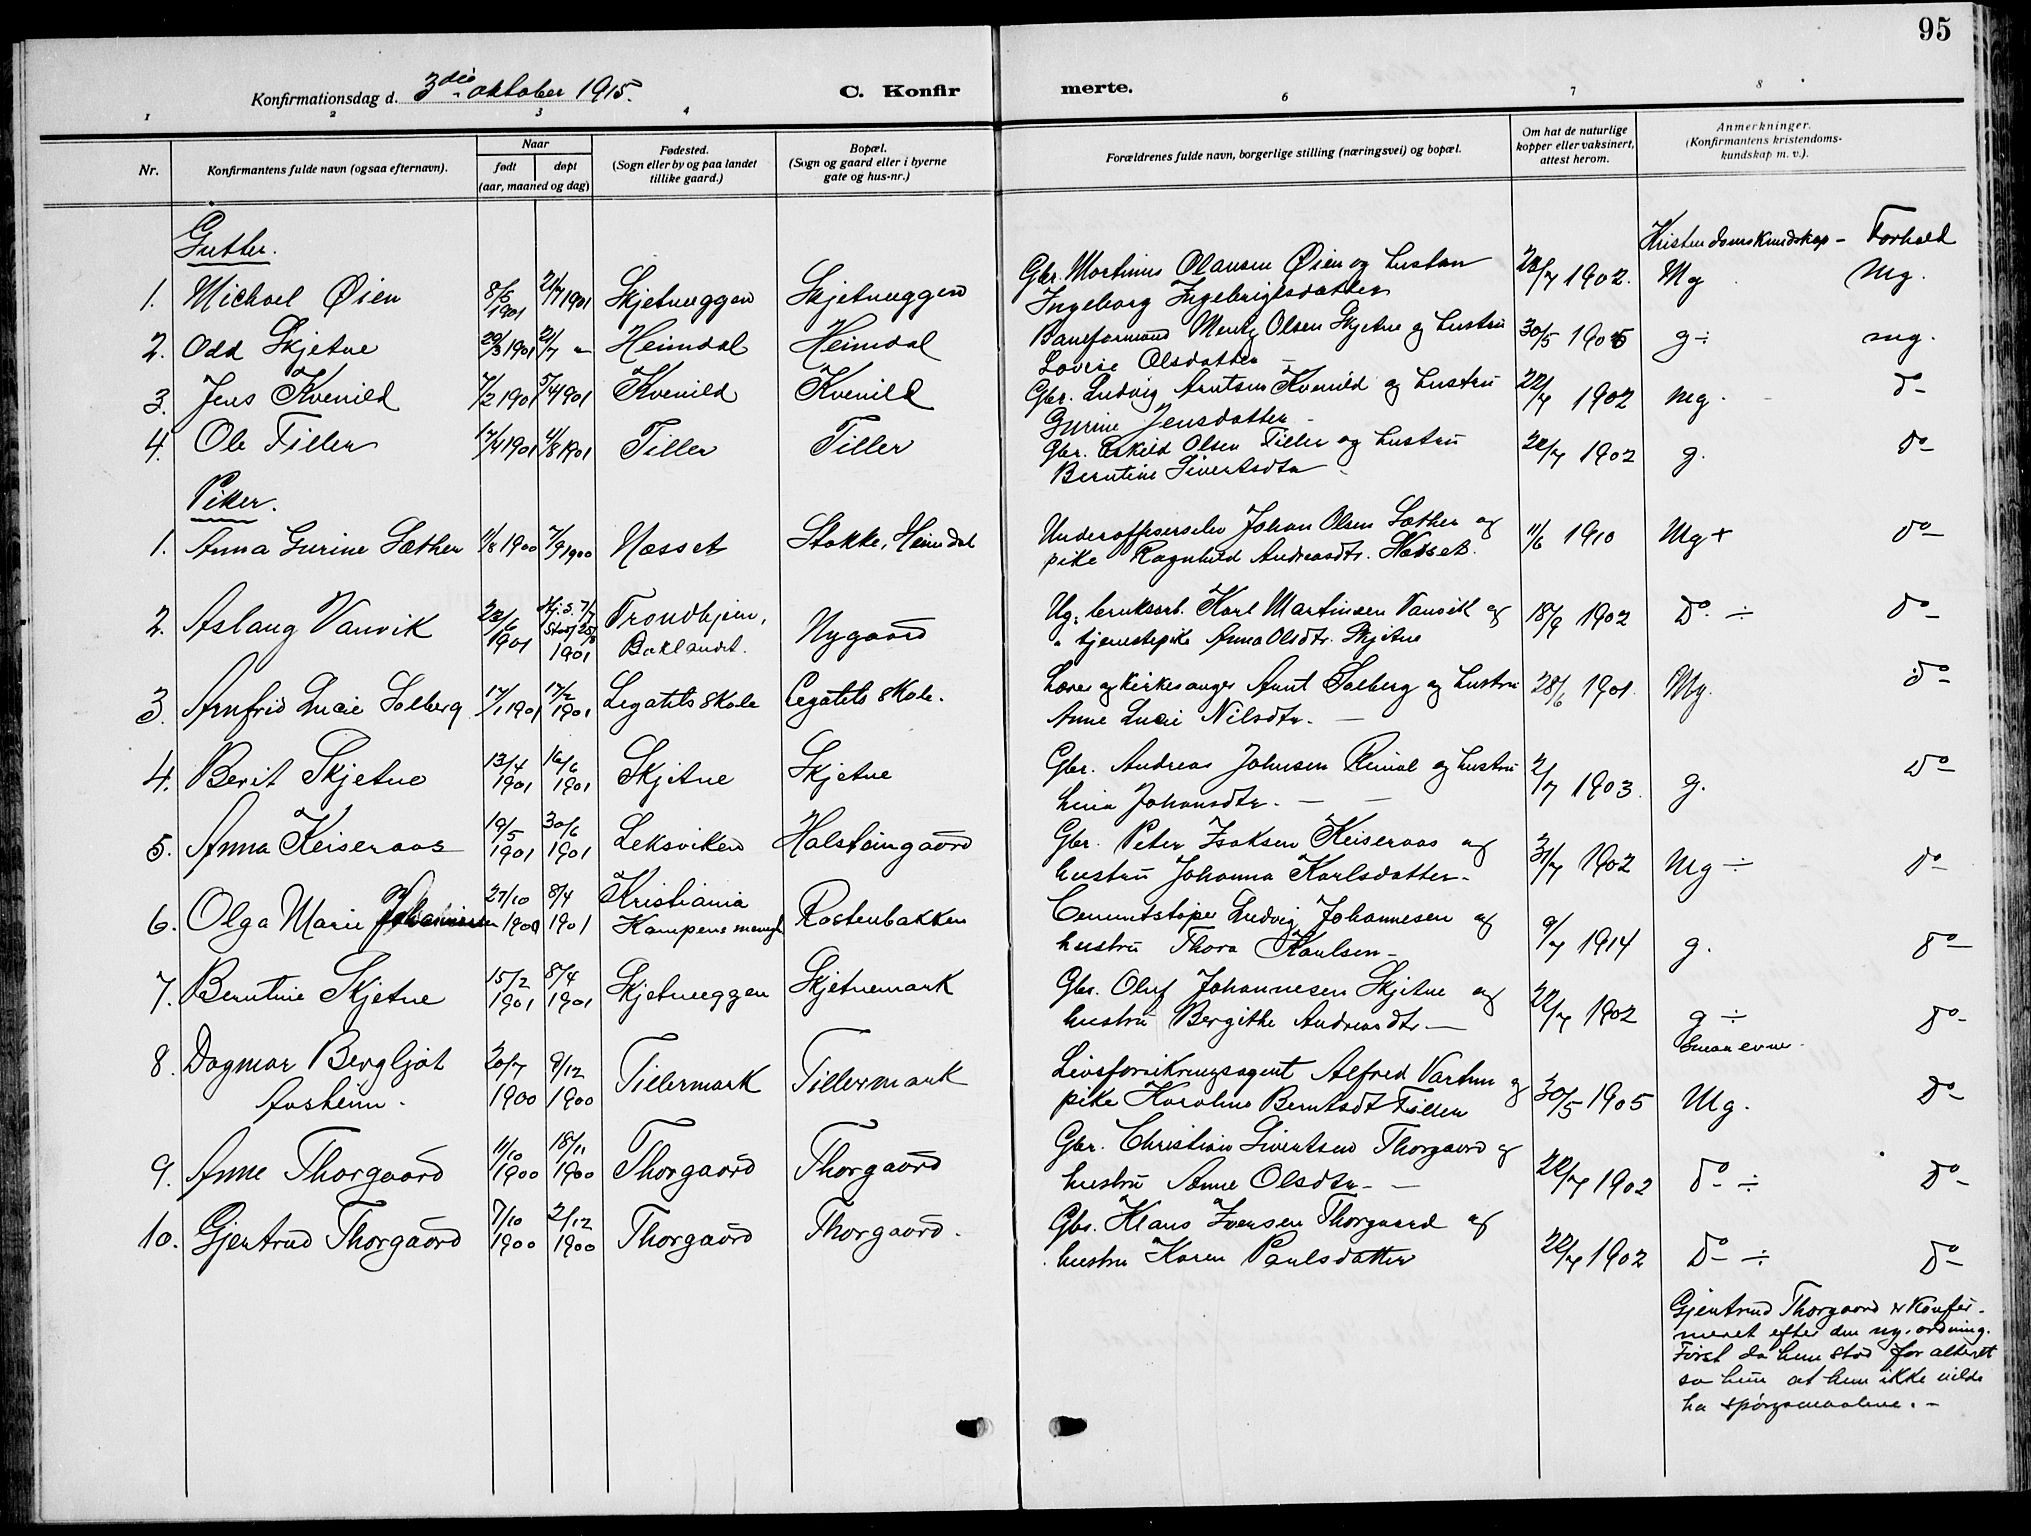 95
Konfirmationsdag d. 3die oktober 1915.
C. Konfirmerte.
1 2 3 4 6 7 8
Nr.
Konfirmantens fulde navn (ogsaa efternavn).
Naar
født døpt
(aar, maaned og dag)
Fødested.
(Sogn eller by og paa landet
tillike gaard.)
Bopæl.
(Sogn og gaard eller i byerne
gate og hus-nr.)
Forældrenes fulde navn, borgerlige stilling (næringsvei) og bopæl.
Om hat de naturlige
kopper eller vaksinert,
attest herom.
Anmerkninger.
(Konfirmantens kristendoms-
kundskap m. v.).
Gutter.
Kristendomskundskap - Forhold
1. Michael Øien 8/5 1901 21/7 1901 Skjetneggen Skjetneggen
Gbr. Martinus Olausen Øien og hustru
Ingeborg Ingebrigtsdatter
1902. Mg Mg.
2. Odd Skjetne 29/3 1901 21/7 " Heimdal Heimdal
Baneformand Mentz Olsen Skjetne og hustru
Lovise Olsdatter —
30/5 1905 g ÷ mg.
3. Jens Kvenild 7/2 1901 5/4 1901 Kvenild Kvenild
Gbr. Ludvig Arntsen Kvenild og hustru
Gurine Jensdatter -
22/7 1902 mg. do
4. Ole Tiller 17/4 1901 4/8 1901 Tiller Tiller
Gbr. Eskild Olsen Tiller og hustru
Berntine Sivertsdtr
22/7 1902 g. do
Piker.
1. Anna Gurine Sæther 11/8 1900 7/9 1900 Næsset Stokke, Heimdal
Underofficerselev Johan Olsen Sæther og
pike Ragnhild Andreasdtr. Næsset.
11/6 1910 Mg + do
2. Aslaug Vanvik 23/6 1901 Hj.d. 7/7 Stad. 25/8 1901 Trondhjem, Baklandet. Nygaard
Ug. bruksarb. Karl Martinsen Vanvik og
" tjenestepike Anna Olsdtr. Skjetne
18/9 1902 Do ÷ do
3. Arnfrid Lucie Solberg 17/1 1901 17/2 1901 Legatets skole Legatets skole.
Lærer og kirkesanger Arnt Solberg og hustru
Anne Lucie Nilsdtr. —
28/6 1901. Mg. do
4. Berit Skjetne 13/4 1901 16/6 1901 Skjetne Skjetne
Gbr. Andreas Johnsen Rimol og hustru
Johansdtr. —
2/7 1903. g. do
5. Anna Keiseraas 19/5 1901 30/6 1901 Leksviken Halsteingaard
Gbr. Peter Isaksen Keiseraas og
hustru Johanna Karlsdatter.
31/7 1902 Mg ÷ do
6. Olga Marie Johannesen 27/10 1900 8/4 1901 Kristiania Kampens menigh Rostenbakken
Cementstøper Ludvig Johannesen og
hustru Thora Paulsen -
9/7 1914 g. do
7. Berntine Skjetne 15/2 1901 8/4 1901 Skjetneggen Skjetnemark
Gbr. Oluf Johannesen Skjetne og
hustru Bergithe Andreasdtr. —
22/7 1902 g ÷ do
Smaa evner.
8. Dagmar Bergljot
Aasheim. 20/7 1900 9/12 1900 Tillermark Tillermark
Livsforsikringsagent Alfred Vartun og
pike Karoline Berntsdt Tiller
30/5 1905 Mg. do
9. Anne Thorgaard 11/10 1900 18/11 1900 Thorgaard Thorgaard
Gbr. Christian Sivertsen Thorgaard og
hustru Anne Olsdtr. —
22/7 1902 do ÷ do
10. Gjertrud Thorgaard 7/10 1900 2/12 1900 Thorgaard Thorgaard.
Gbr. Klaus Iversen Thorgaard og
hustru Karen Paulsdatter
22/7 1902 Do ÷ do
Gjertrud Thorgaard er konfir-
meret efter den ny. ordning.
Først da hun stod for alteret
sa hun at hun ikke vilde
ha spørgsmaalene. -